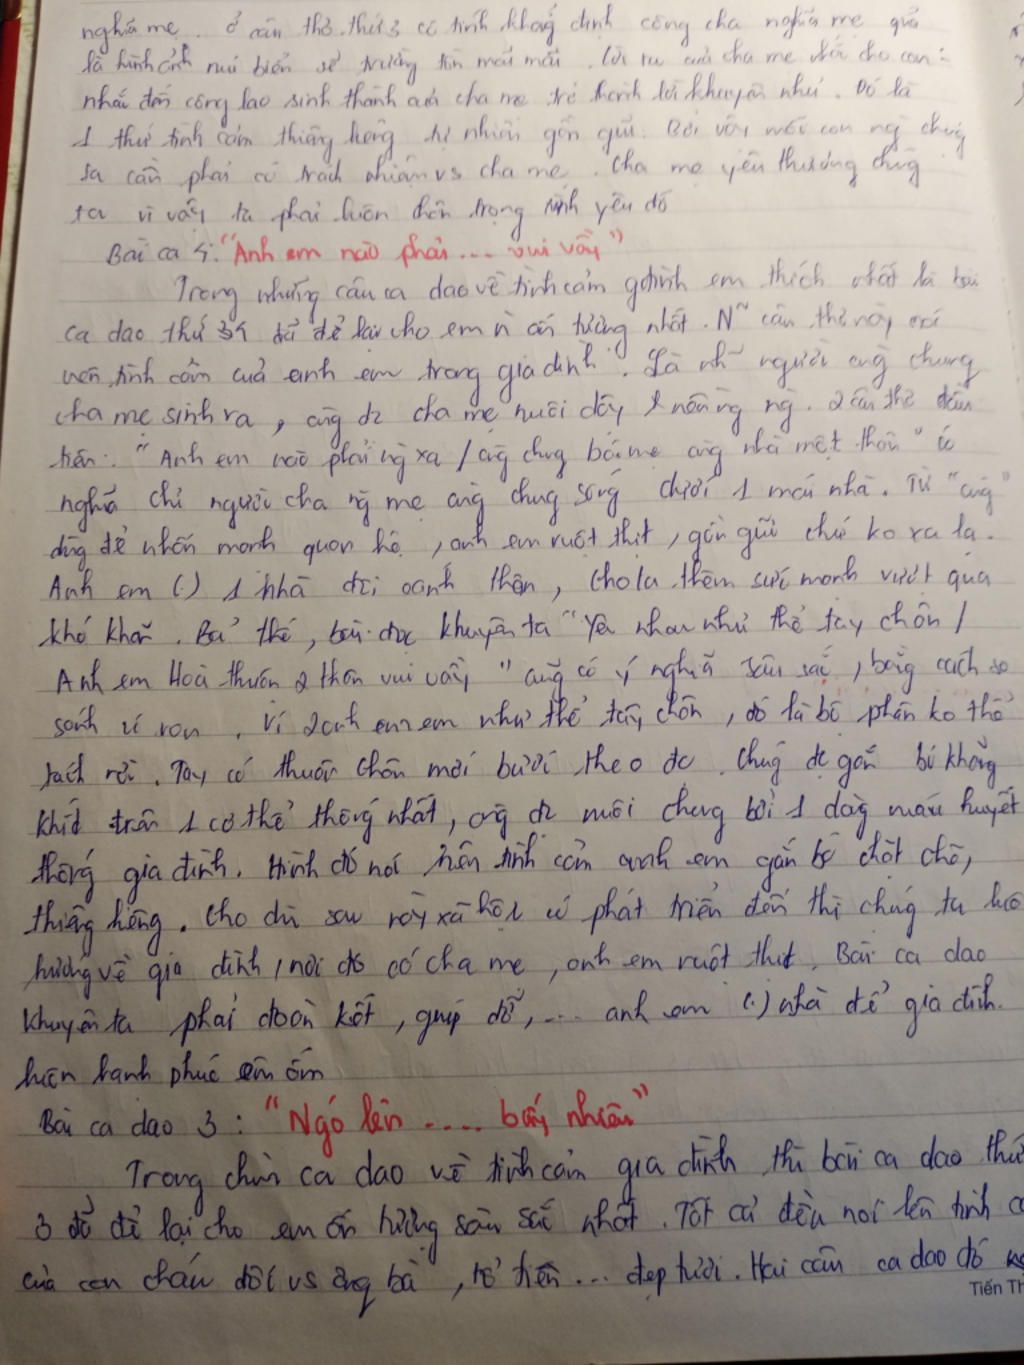 nghĩa mẹ. ở câu thơ thứ 3 có tính khẳng định công cha nghĩa mẹ giống
là hình ảnh núi biển sẽ trường tồn mãi mãi. Lời ru của cha mẹ cho con:
nhắc đến công lao sinh thành của cha mẹ trở thành lời khuyên nhủ. Đó là
1 thứ tình cảm thiêng liêng tự nhiên gần gũi. Bởi vậy mỗi con ng chúng
ta cần phải có trách nhiệm vs cha mẹ. Cha mẹ yêu thương chúng
ta vì vậy ta phải luôn trân trọng tình yêu đó
Bài ca 4: "Anh em nào phải ... vui vầy"
Trong những câu ca dao về tình cảm gđình em thích nhất là bài
ca dao thứ 4 đã để lại cho em ấn tượng nhất. câu thơ này nói
lên tình cảm của anh em trong gia đình. Là người cùng chung
cha mẹ sinh ra, cùng đc cha mẹ nuôi dậy. 2 câu thơ đầu
tiên: "Anh em nào phải ng xa / cùng chung bác mẹ cùng nhà một thân" có
nghĩa chỉ người cha ng mẹ cùng chung sống dưới 1 mái nhà. Từ "cùng"
dùng để nhấn mạnh quan hệ, anh em ruột thịt, gần gũi chứ ko xa lạ.
Anh em (.) 1 nhà thân, cho ta thêm sức mạnh vượt qua
khó khăn. Bởi thế, bài khuyên ta "Yêu nhau như thể tay chân /
Anh em Hoà thuận 2 thân vui vầy" cũng có ý nghĩa sâu sắc, bằng cách so
sánh ví von. Ví 2 anh em như thể tay chân, đó là bộ phận ko thể
tách rời. Tay có thuận chân mới bước theo đc. Chúng đc gắn bó khăng
khít trên 1 cơ thể thống nhất, cùng đc nuôi chung bởi 1 dòng máu huyết
thống gia đình. Hình đó nói lên tình cảm anh em gắn bó chặt chẽ,
thiêng liêng. Cho dù sau này xã hội có phát triển đến thì chúng ta luôn
hướng về gia đình, nơi đó có cha mẹ, anh em ruột thịt. Bài ca dao
khuyên ta phải đoàn kết, giúp đỡ, ... anh em (.) nhà để gia đình
luôn hạnh phúc êm ấm
Bài ca dao 3: "Ngó lên .... bấy nhiêu"
Trong chùm ca dao về tình cảm gia đình thì bài ca dao thứ
3 đã để lại cho em ấn tượng sâu sắc nhất. Tất cả đều nói lên tình
của con cháu đối vs ông bà, tổ tiên ... đẹp tươi. Hai câu ca dao đó
Tiến Th